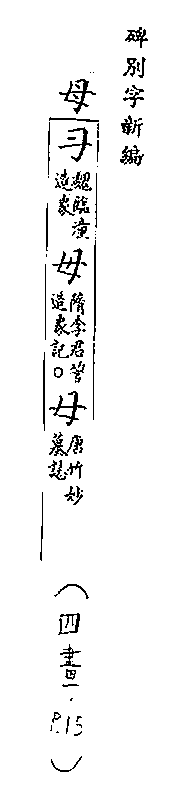 碑別字新編
母
彐 魏臨潼造象
毋 隋李君䛒造象記。
母 唐竹妙墓誌
（四畫．P.15）